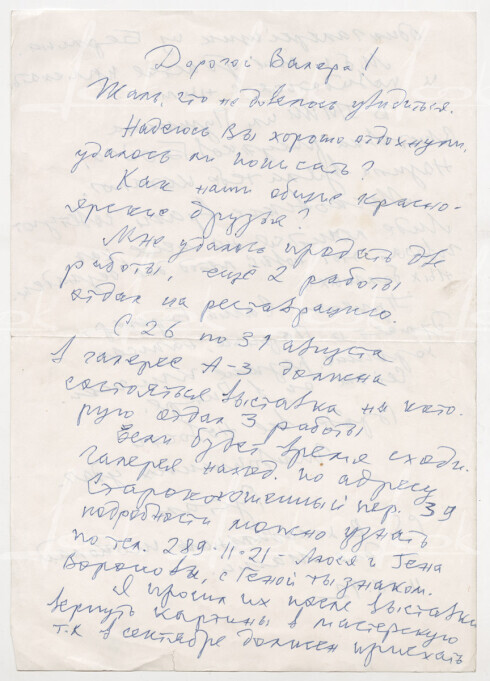 Дорогой Валера!
Жаль, что не довелось увидиться.
Надеюсь Вы хорошо отдохнули.
удалось ли пописать?
Как наши общие красно-
ярские друзья?
Мне удалось продать две
работы, ещё 2 работы
отдал на реставрацию.
С 26 по 31 августа
в галерее А-3 должна
состояться выставка на кото-
рую отдал 3 работы
Если будет время сходи.
галерея наход. по адресу
Староконюшенный пер. 39
подробности можно узнать
по тел. 289-11-21 - Люся и Гена
с Геной ты знаком.
Я просил их после выставки
вернуть картины в мастерскую
т.к в сентябре должен приехать